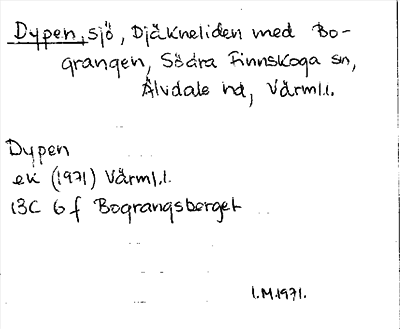 Dypen, sjö, Djäkneliden med Bo-
grangen, Södra Finnskoga sn,
Älvdals hd, Värml.l.
Dypen
ek (1971) Värml.l.
13C 6f Bograngsberget
I.M.1971.